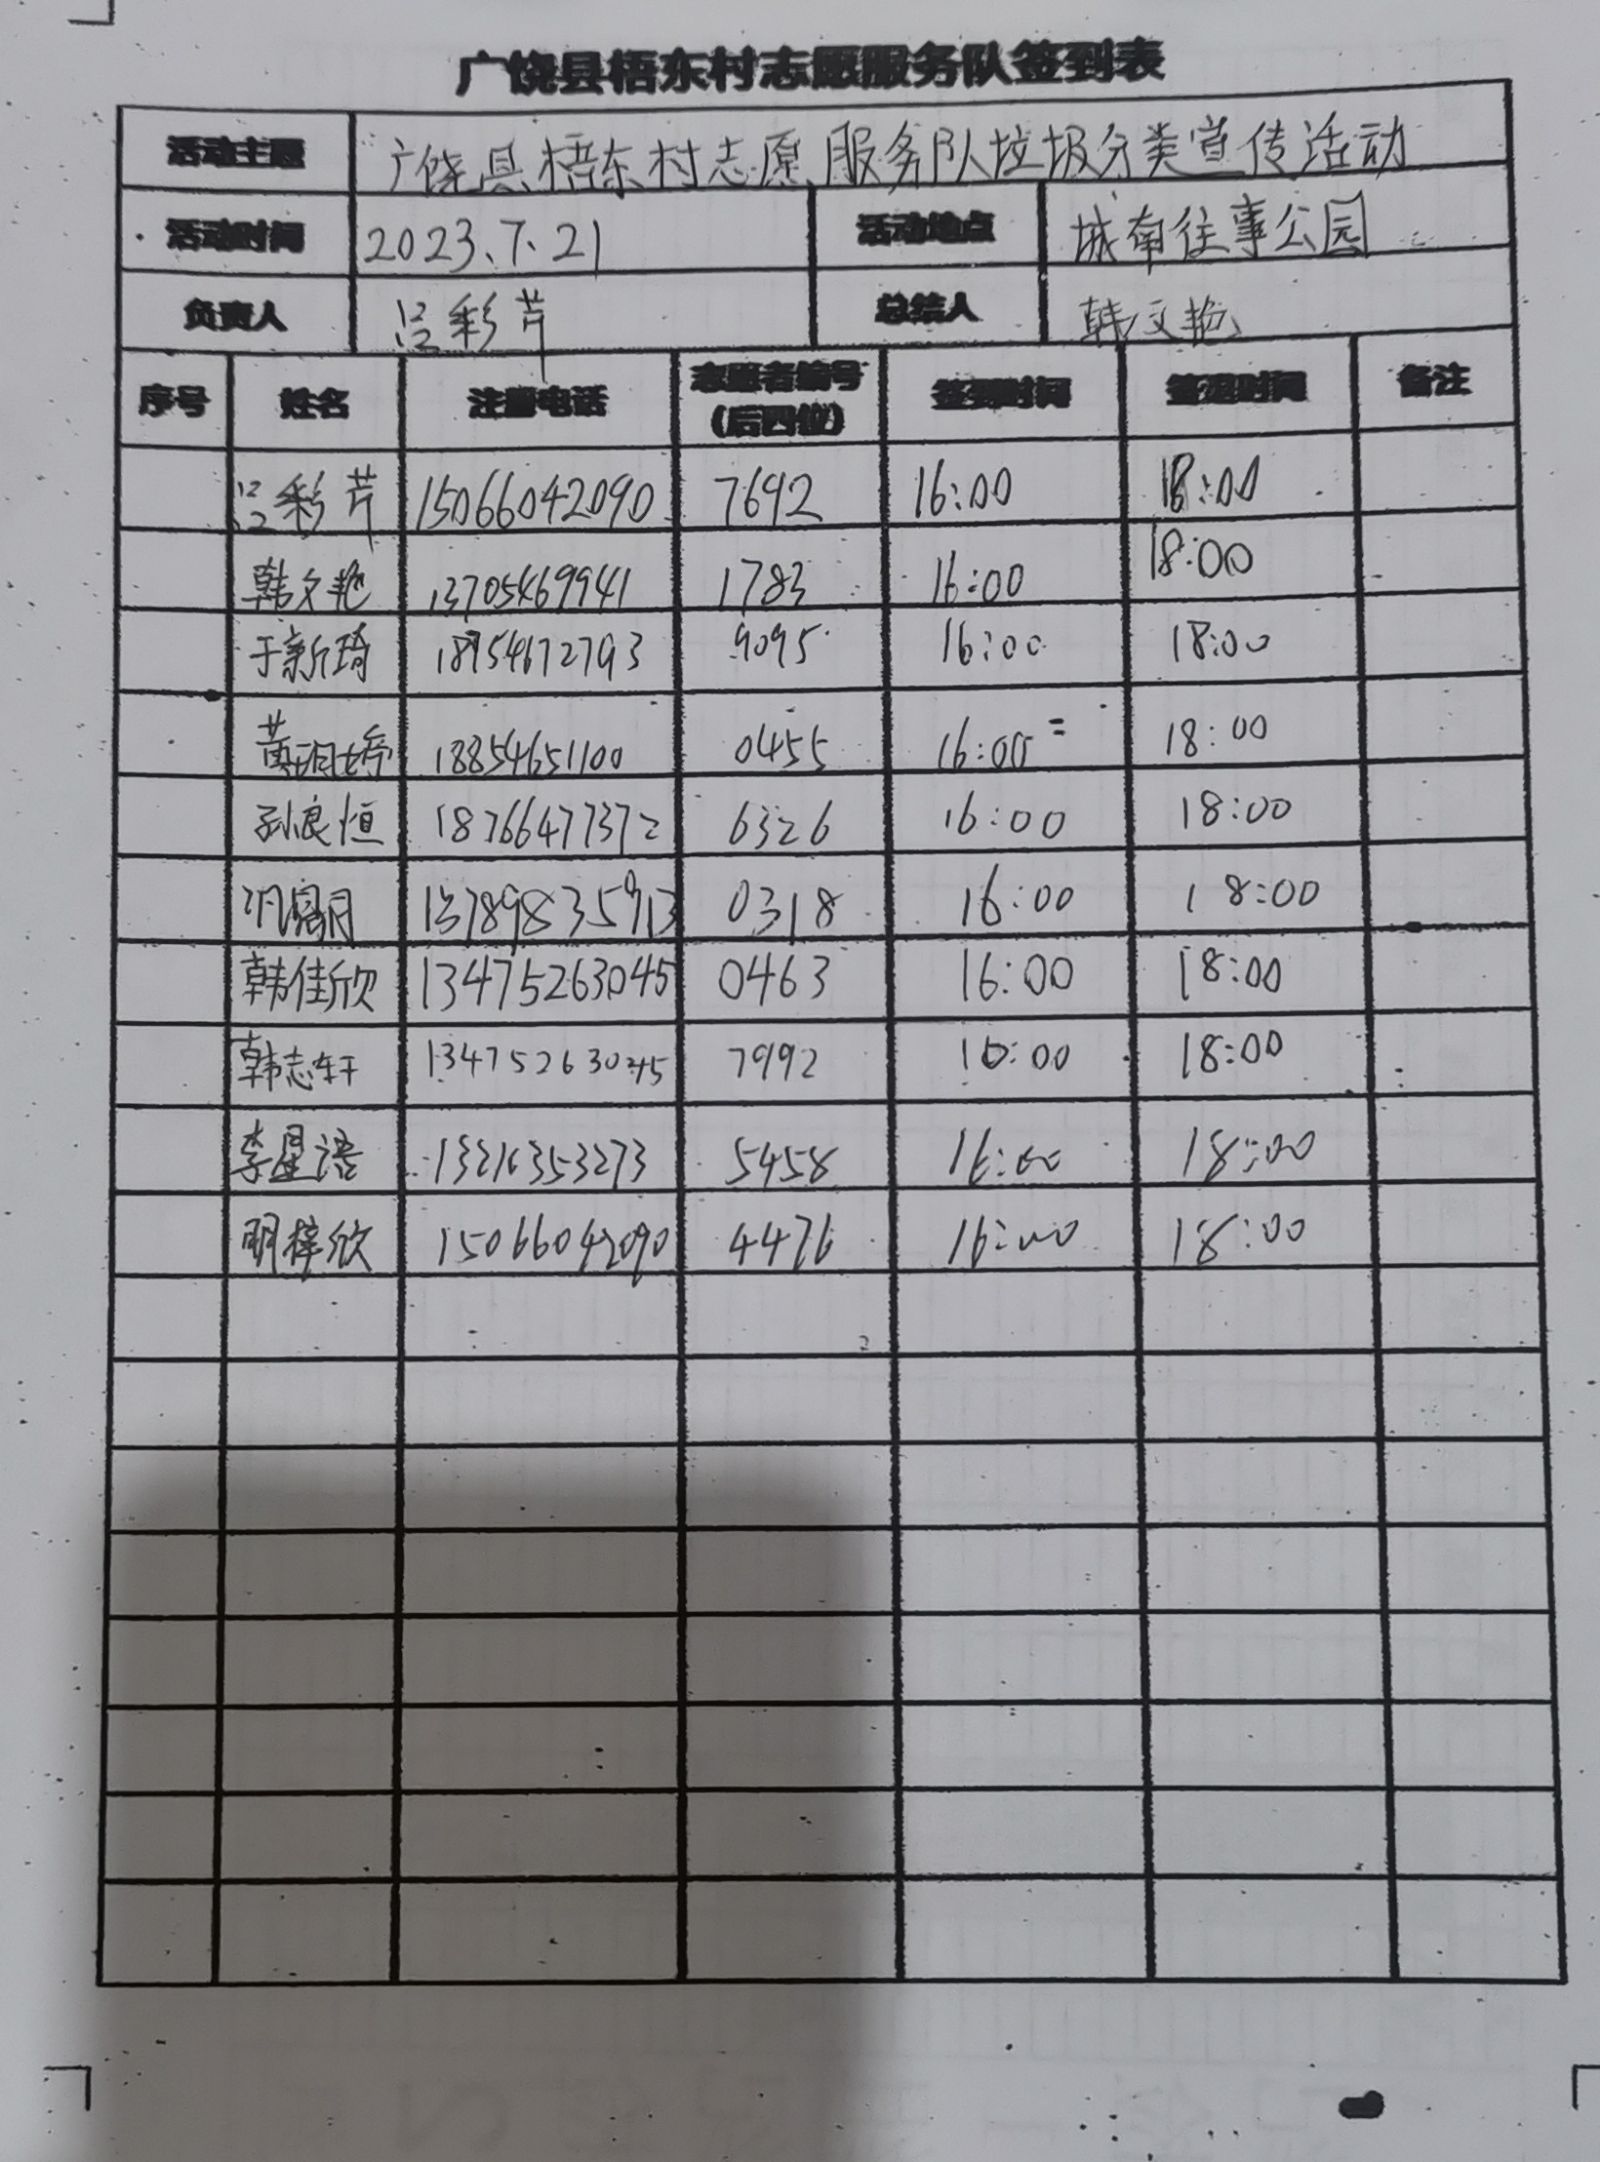 广饶县梧东村志愿服务队签到表
活动主题 广饶县梧东村志愿服务队垃圾分类宣传活动
活动时间 2023.7.21 活动地点 城南往事公园
负责人 吕彩芹 总结人 韩文艳
序号 姓名 注册电话 志愿者编号 签到时间 签退时间 备注
(后四位)
吕彩芹 15066042090 7692 16:00 18:00
韩文艳 13705469941 1783 16:00 18:00
于新琦 18954672793 9095 16:00 18:00
黄玥婷 18854651100 0455 16:00 18:00
孙良恒 18766477372 6326 16:00 18:00
13789835913 0318 16:00 18:00
韩佳欣 13475263045 0463 16:00 18:00
韩志轩 13475263045 7992 16:00 18:00
李星语 5458 16:00 18:00
明梓欣 15066042090 4476 16:00 18:00